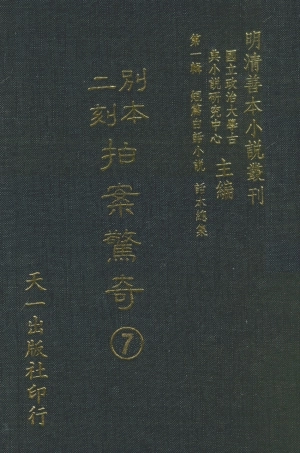 明清善本小說叢刊
國立政治大學古
典小說研究中心
主編
第一輯 短篇白話小說 話本總集
別本
二刻
拍案驚奇
⑦
天一出版社印行